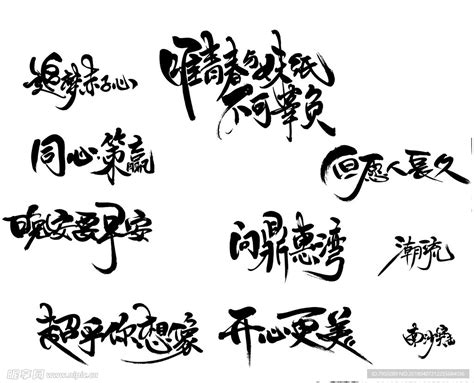 追梦赤子心
唯青春与妹纸
不可辜负
同心策赢
但愿人长久
晚安要早安
问鼎惠湾
潮流
超乎你想像
开心更美
南沙
昵享网 www.nipic.cn